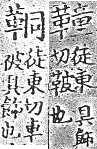 徒東切鞁具飾也
徒東切車鞁具飾也